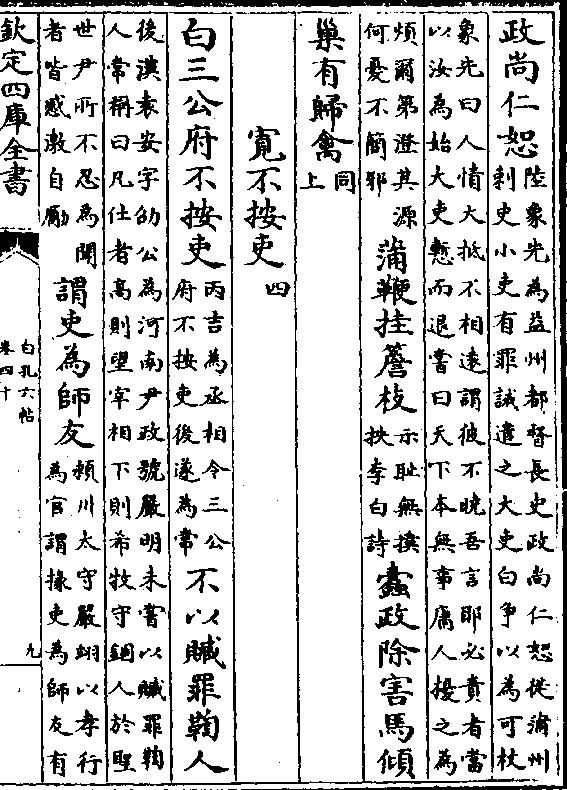 政尚仁恕陸象先為益州都督長史政尚仁恕從蒲州刺史小吏有罪誡遣之大吏白争以為可杖
象先曰人情大抵不相逺謂彼不曉吾言耶必責者當以汝為始大吏慙而退嘗曰天下本無事庸人擾之為
煩爾第澄其源何憂不簡邪蒲鞭挂簷枝示耻無撲抶李白詩蠧政除害馬傾
巢有歸禽同上
寛不按吏四
白三公府不按吏丙吉為丞相令三公府不按吏後遂為常不以贓罪鞫人
後漢袁安字邵公為河南尹政號嚴明未嘗以贓罪鞫人常稱曰凡仕者髙則望宰相下則希牧守錮人於聖
世尹所不忍為聞者皆感激自勵謂吏為師友頴川太守嚴翊以孝行為官謂掾吏為師友有
欽定四庫全書
白孔六帖
卷四十
九